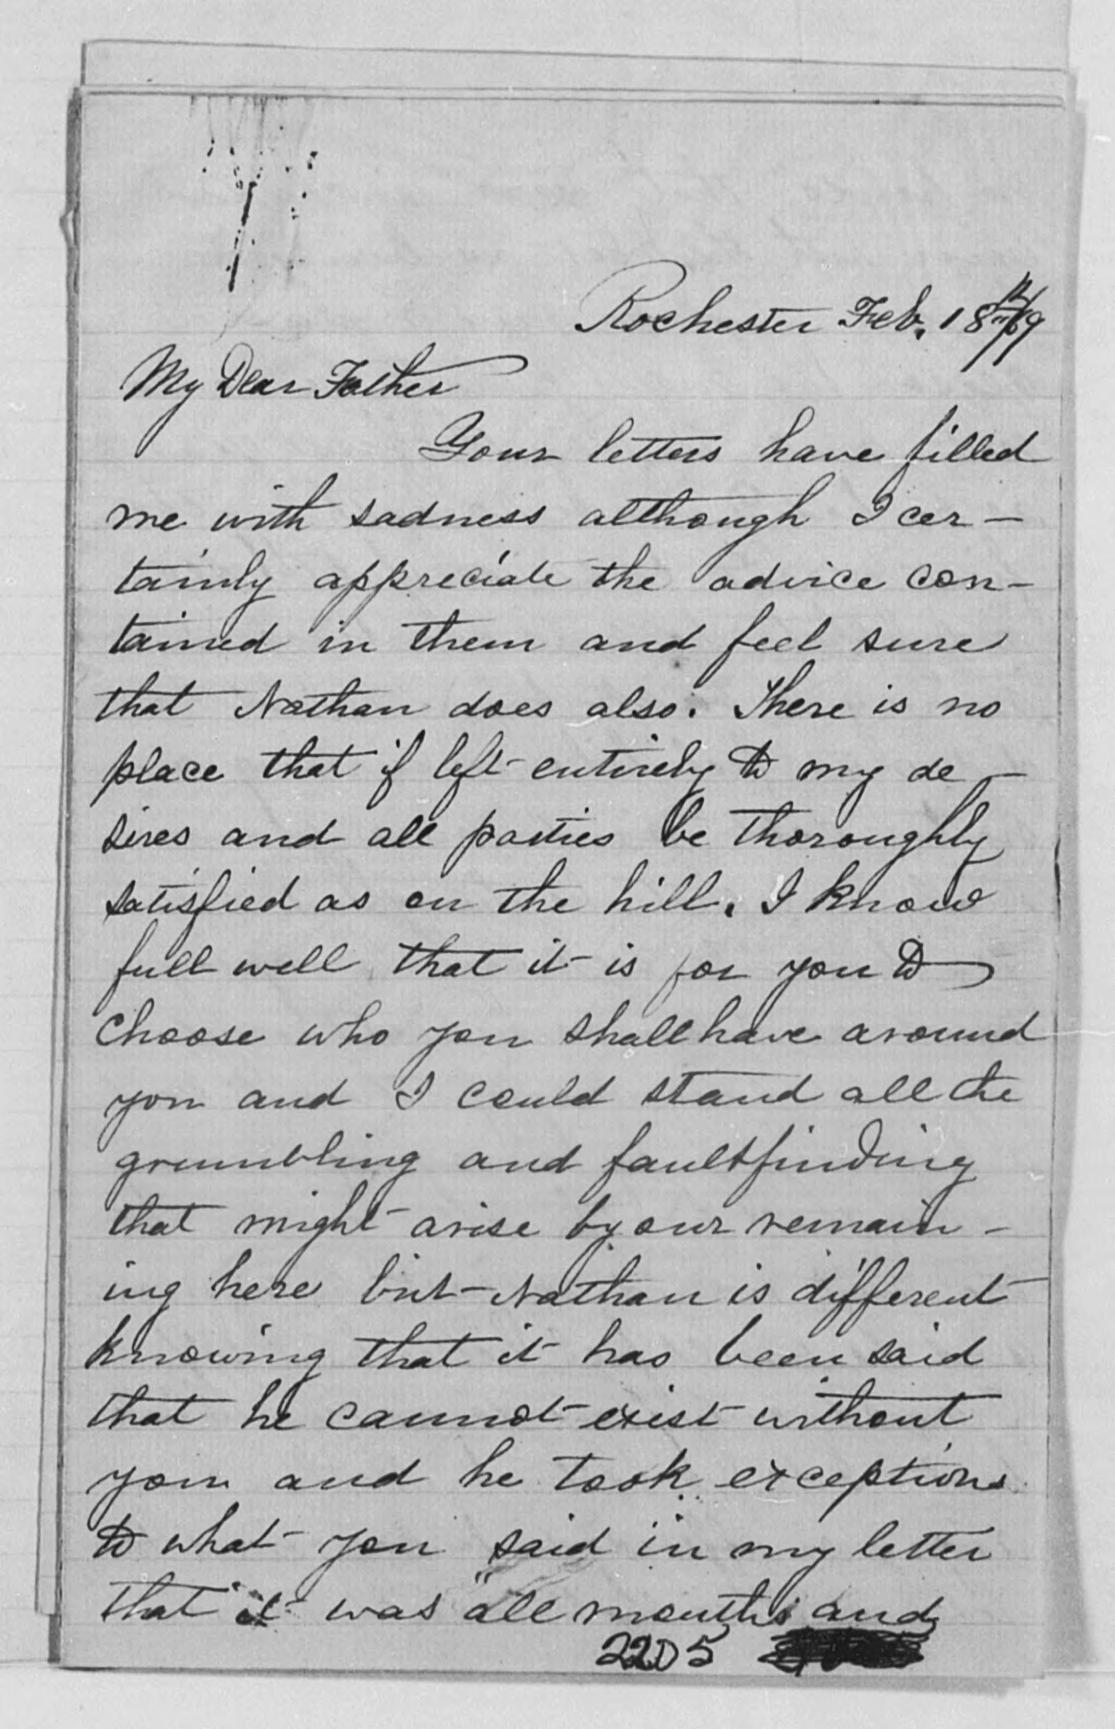 Rochester Feb. 18th/69
My Dear Father
Your letters have filled
me with sadness although I cer-
tainly appreciate the advice con-
tained in them and feel sure
that Nathan does also. There is no
place that if left entirely to my de-
sires and all parties be thoroughly
satisfied as on the hill. I know
full well that it is for you to
choose who you shall have around
you and I could stand all the
grumbling and faultfinding
that might arise by our remain-
ing here but Nathan is different
knowing that it has been said
that he cannot exist without
you and he took exceptions
to what you said in my letter
that it was "all mouths and
2205